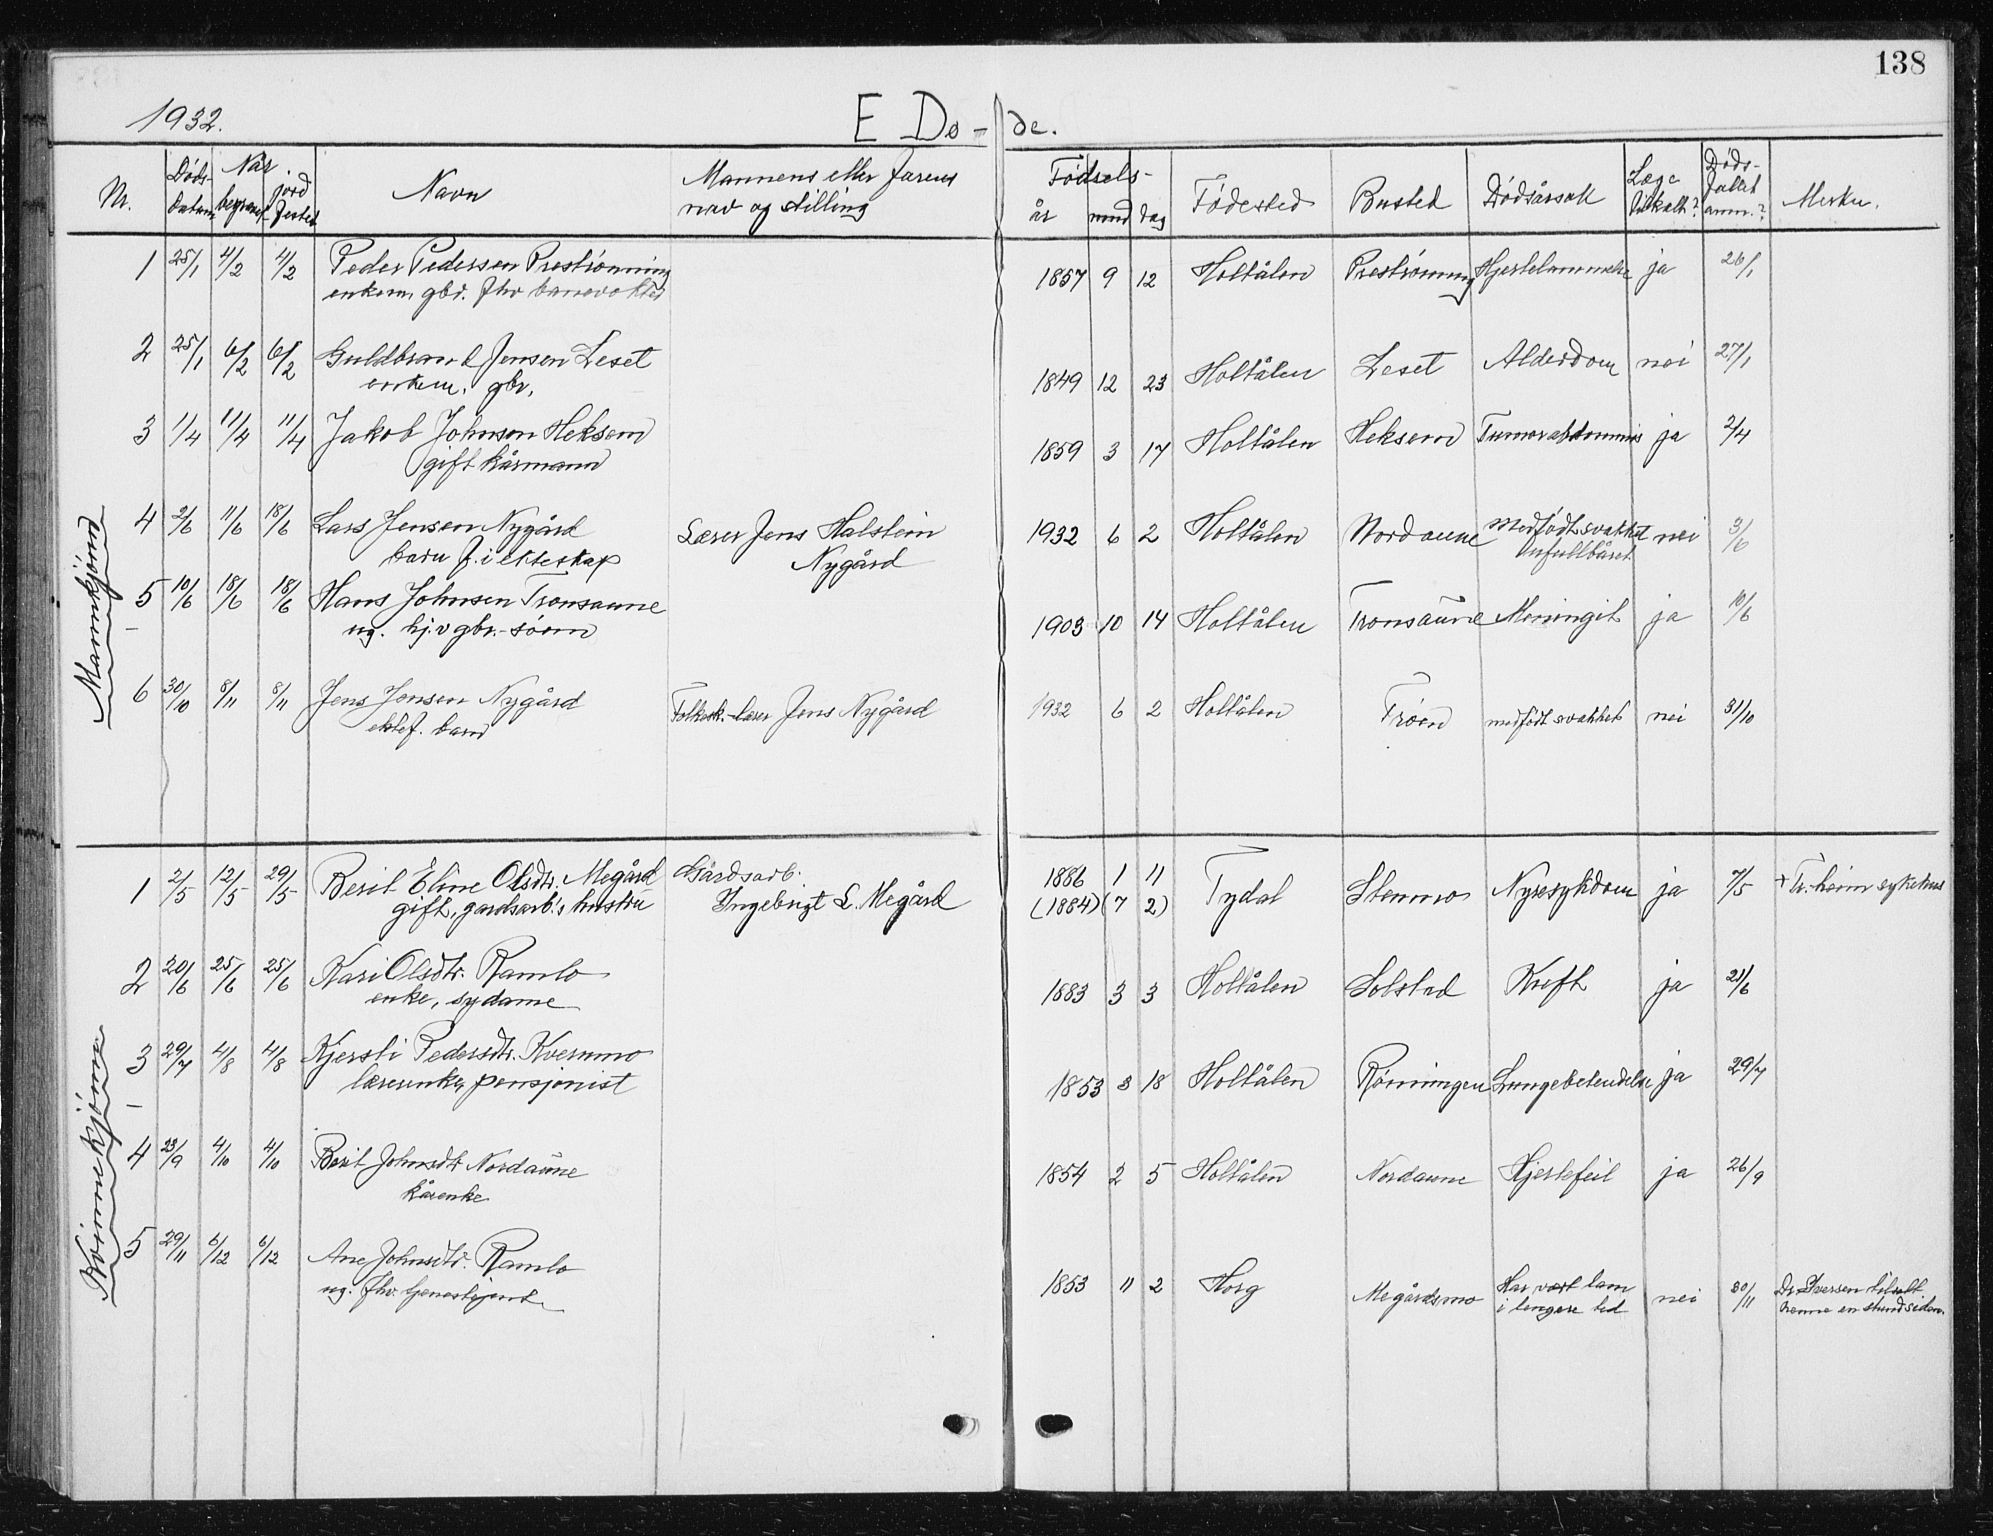 138
1932. E Dø- de.
Nr. Døds-datum Når begravet jordfestet Navn Mannens eller farens navn og stilling Fødsels- år mnd dag Fødested Busted Dødsårsak Læge tilkalt? Dødsfallet anm.? Merkn.
Mannkjønn
1 25/1 4/2 4/2 Peder Pedersen Prestrønning 1857 9 12 Holtålen Prestrønning Hjertelammelse ja 26/1
enkem. gbr. fhv banevokter
2 25/1 6/2 6/2 Guldbrand Jensen Leset 1849 12 23 Holtålen Leset Alderdom nei 27/1
enkem. gbr.
3 1/4 11/4 11/4 Jakob Johnsen Heksem 1859 3 17 Holtålen Heksem Tumor abdominis ja 2/4
gift kårmann
4 2/6 11/6 18/6 Lars Jensen Nygård Lærer Jens Halstein 1932 6 2 Holtålen Nordaune Medfødt svakhet nei 3/6
barn f. i ekteskap Nygård Unfullbåret
5 10/6 18/6 18/6 Hans Johnsen Tronsaune 1903 10 14 Holtålen Tronsaune Meningit ja 10/6
ug. hj.v gbr.-sønn
6 30/10 8/11 8/11 Jens Jensen Nygård Folkesk.-lærer Jens Nygård 1932 6 2 Holtålen Trøen medfødt svakhet nei 31/10
ektef. barn
Kvinnekjønn
1 2/5 12/5 29/5 Berit Eline Olsdtr. Megård Gårdsarb. 1886 1 11 Tydal Stenmo Nyresykdom ja 7/5 + Tr.heim sykehus
gift, gardsarb.s hustru Ingebrigt L. Megård (1884) (7 2)
2 20/6 25/6 25/6 Kari Olsdtr. Ramlo 1883 3 3 Holtålen Solstad Kreft ja 21/6
enke, sydame
3 29/7 4/8 4/8 Kjersti Pedersdtr. Kvernmo 1853 3 18 Holtålen Rønningen Lungebetendelse ja 29/7
lærerenke, pensjonist
4 23/9 4/10 4/10 Berit Johnsdtr Nordaune 1854 2 5 Holtålen Nordaune Hjertefeil ja 26/9
kårenke
5 29/11 6/12 6/12 Ane Johnsdtr. Ramlo 1853 11 2 Horg Megårdsmo Har vært lam nei 30/11 Dr. Iversen tilsett
ug. fhv. tjenestejente i lengere tid henne en stund siden.